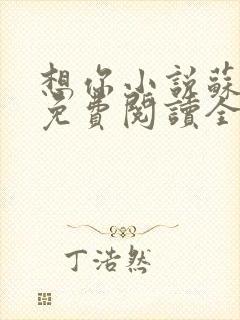 想你小説蘇
免費閱讀全
丁浩然